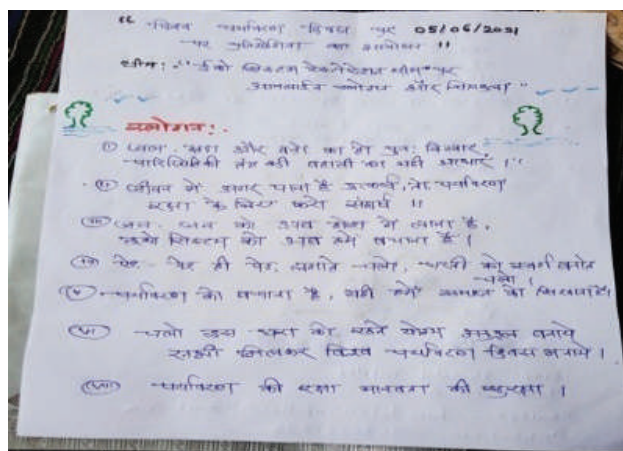 " विश्व पर्यावरण दिवस पर 05/06/2021
पर प्रतियोगिता का आयोजन "
थीम:- "ईको सिस्टम रेस्टोरेशन थीम" पर
आनलाईन स्लोगन और निबन्ध "
स्लोगन:-
① जल, और वनों का हो पुनः विस्तार
पारिस्थितिकी तंत्र की बहाली का यही आधार । "
जीवन में अगर पाना है उत्कर्ष, तो पर्यावरण
रक्षा के लिए करो संघर्ष ॥
जन - जन को अब होश में लाना है,
इको सिस्टम को अब हमें बचाना है ।
पेड़ ही पेड़ लगाते चलो, धरती को स्वर्ग बनाते
चलो ।
पर्यावरण को बचाना है, यही हमें समाज को सिखाना है।
चलो इस धरा को रहने योग्य अनुकूल बनाये
सभी मिलकर विश्व पर्यावरण दिवस मनाये ।
पर्यावरण की रक्षा मानवता की सुरक्षा ।